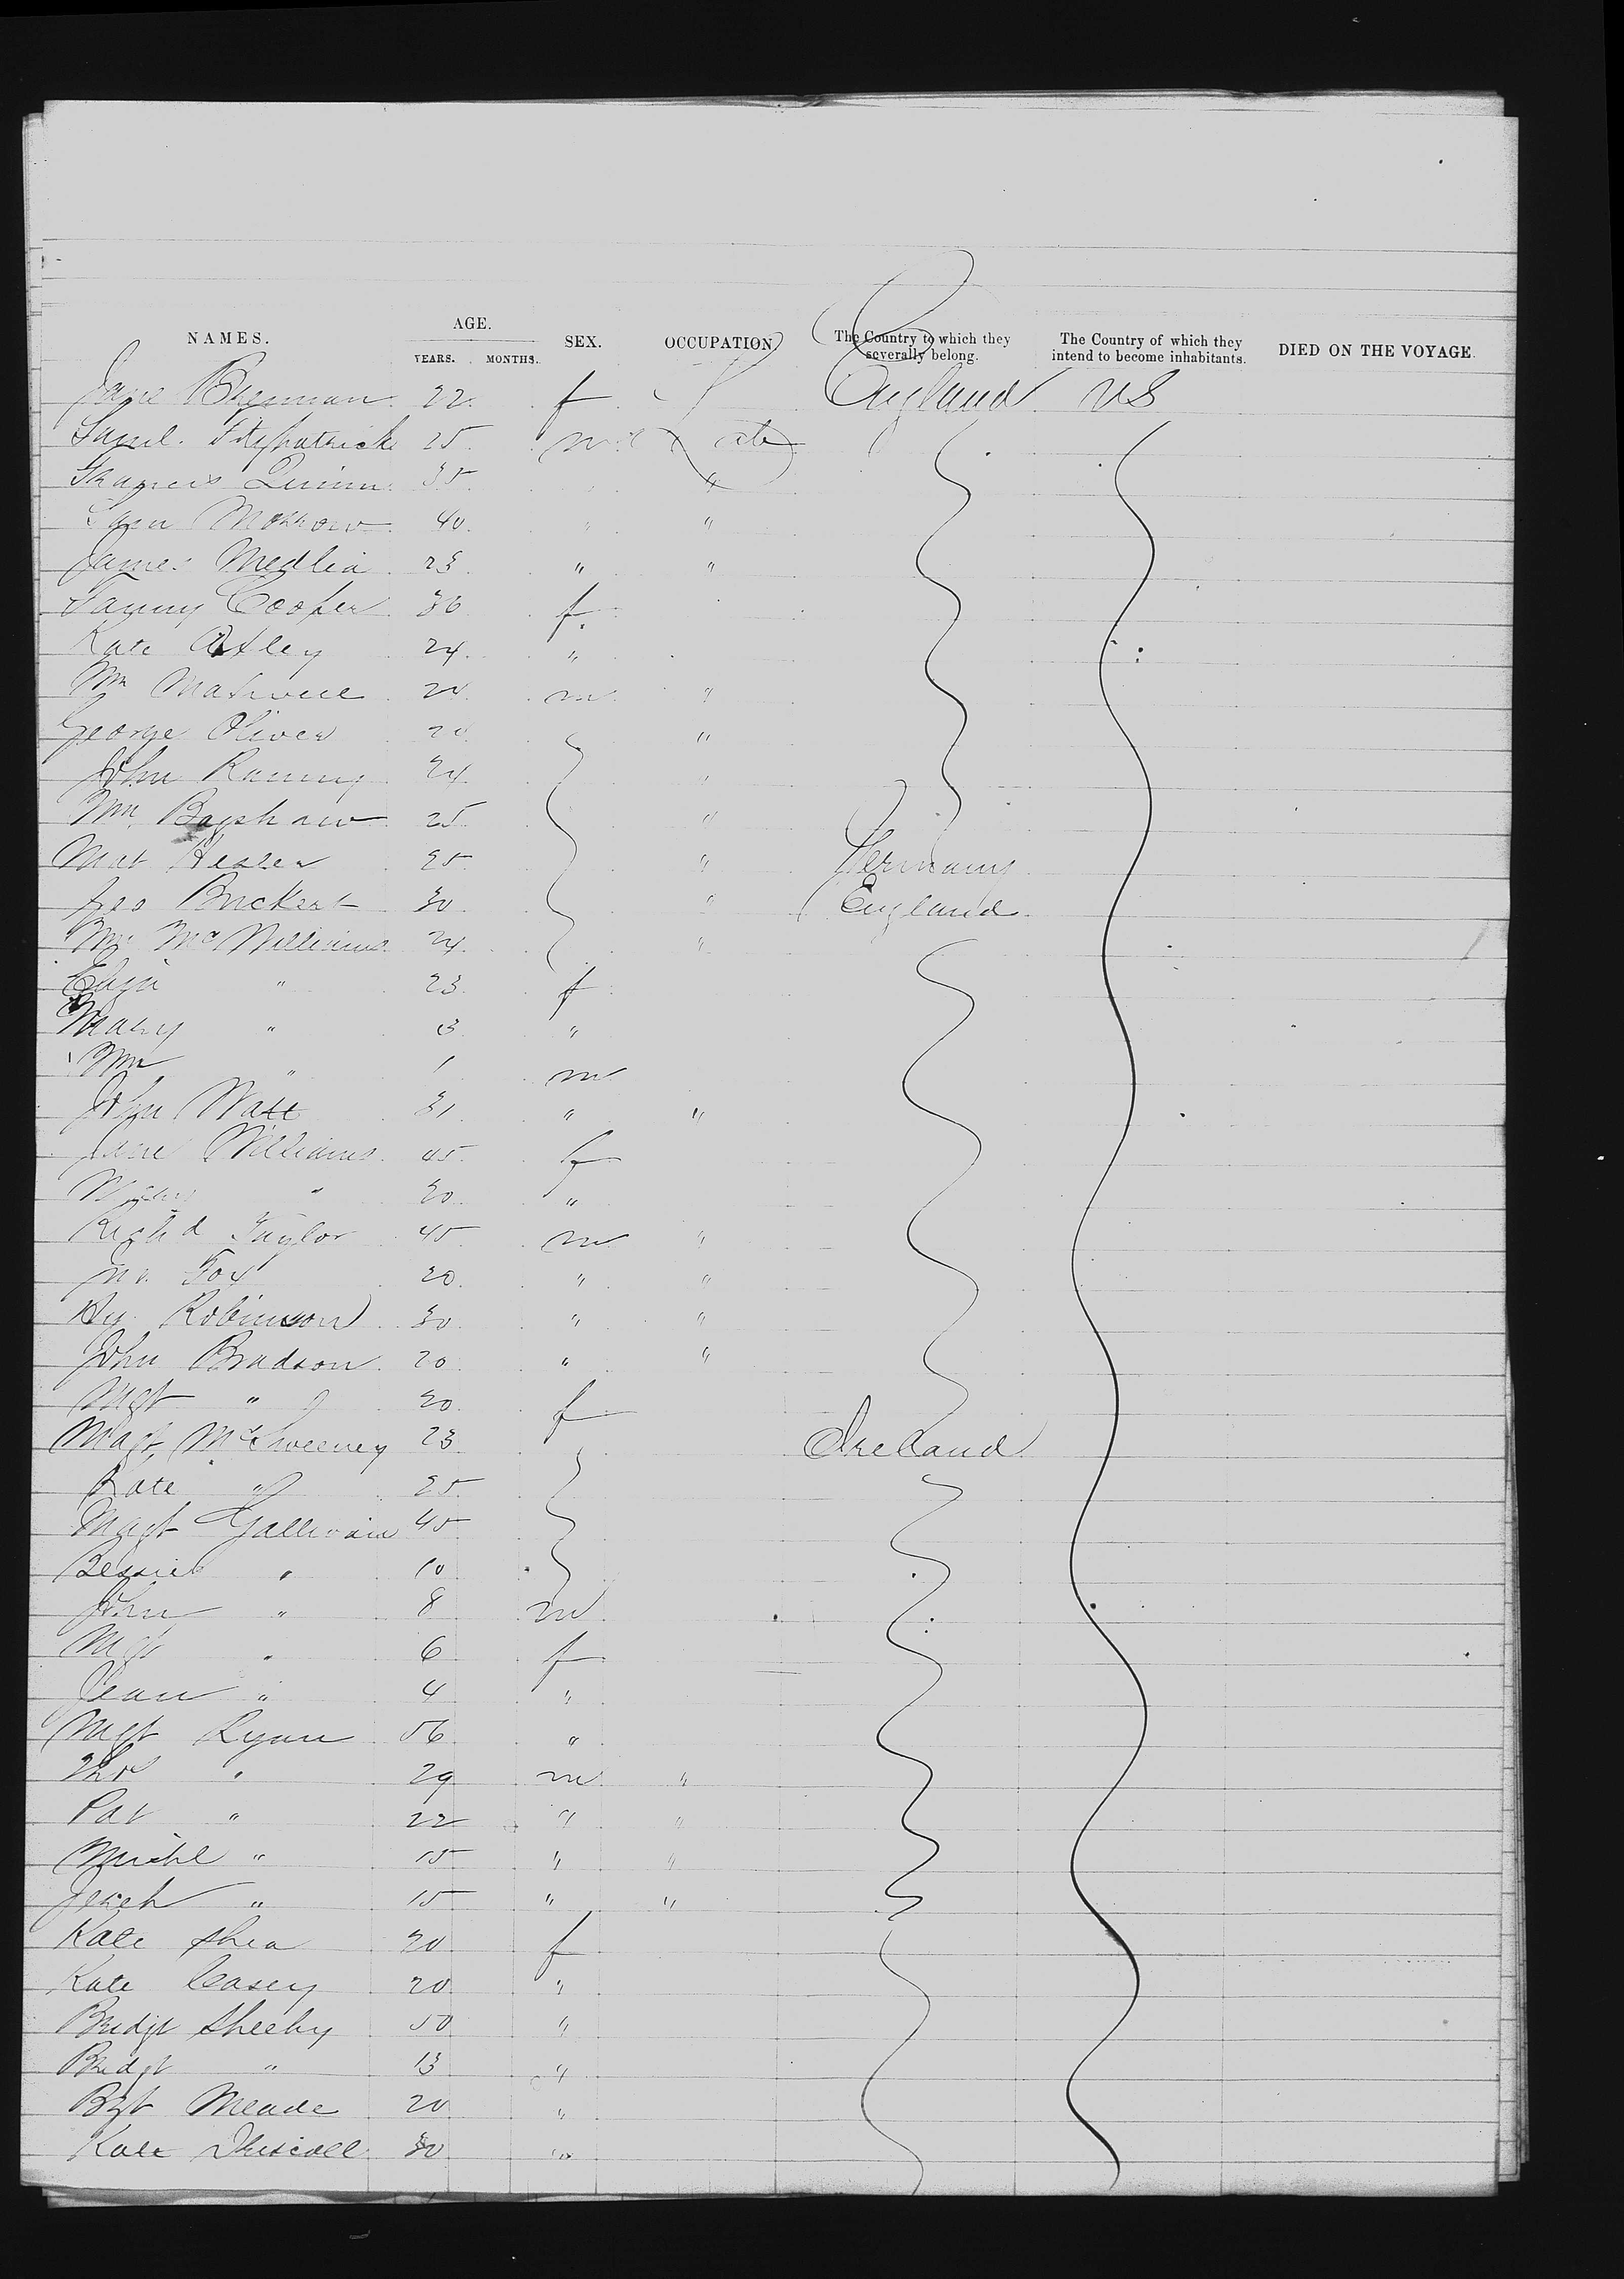 NAMES. AGE. SEX. OCCUPATION The Country to which they severally belong. The Country of which they intend to become inhabitants. DIED ON THE VOYAGE.
YEARS. MONTHS.
Jane Brennan 22 f England US
Saml. Fitzpatrick 25 m
Quinn 35 "
Morrow 40 " "
James Medlia 23 " "
Fanny Cooper 30 f
Kate 24 "
Wm 24 m "
George Oliver "
John 24 "
Wm Bagshaw 25 "
Mat " Germany
Geo 30 " England
Wm McWilliams 24 "
Eliza " 23 f
Mary " 3 "
Wm " 1 m
John 31 " "
Jane Williams 45 f
Mary " 20 "
Richd Taylor 45 m "
Jno. Fox 20 " "
Hy Robinson 30 " "
John Bradson 20 " "
Mgt " 20 f
Magt McSweeney 23 Ireland
Kate "
Magt Gallivain 45
Bessie " 10
John " 8 m
" 6 f
Jean " 4 "
Mgt Lynn 56 "
Thos " 29 m "
Pat " 22 " "
Michl " 15 " "
" 15 " "
Kate Shea 20 f
Kate Casey 20 "
Bridgt Sheehy 50 "
Bridgt " 13 "
Bgt Meade 20 "
Kate Driscoll 30 "